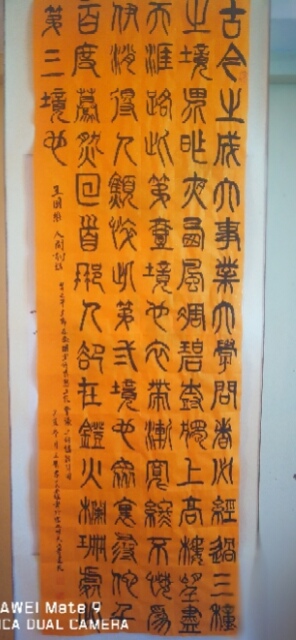 古今之成大事業大學問者必經過三種
之境界昨夜西風凋碧樹獨上高樓望盡
天涯路此第壹境也衣帶漸寬終不悔爲
伊消得人顦悴此第弍境也眾裏尋他千
百度驀然回首那人卻在鐙火欄珊處此
第三境也
王國維人間詞話
AWEI Mate 9
ICA DUAL CAMERA